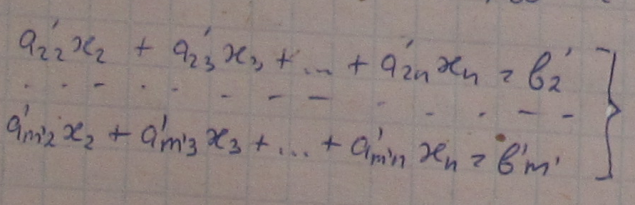 a'₂₂x₂ + a'₂₃x₃ + ... + a'₂ₙxₙ = b₂' }
. . . . . . . . . . . .
a'ₘ'₂x₂ + a'ₘ'₃x₃ + ... + a'ₘ'ₙxₙ = b'ₘ'